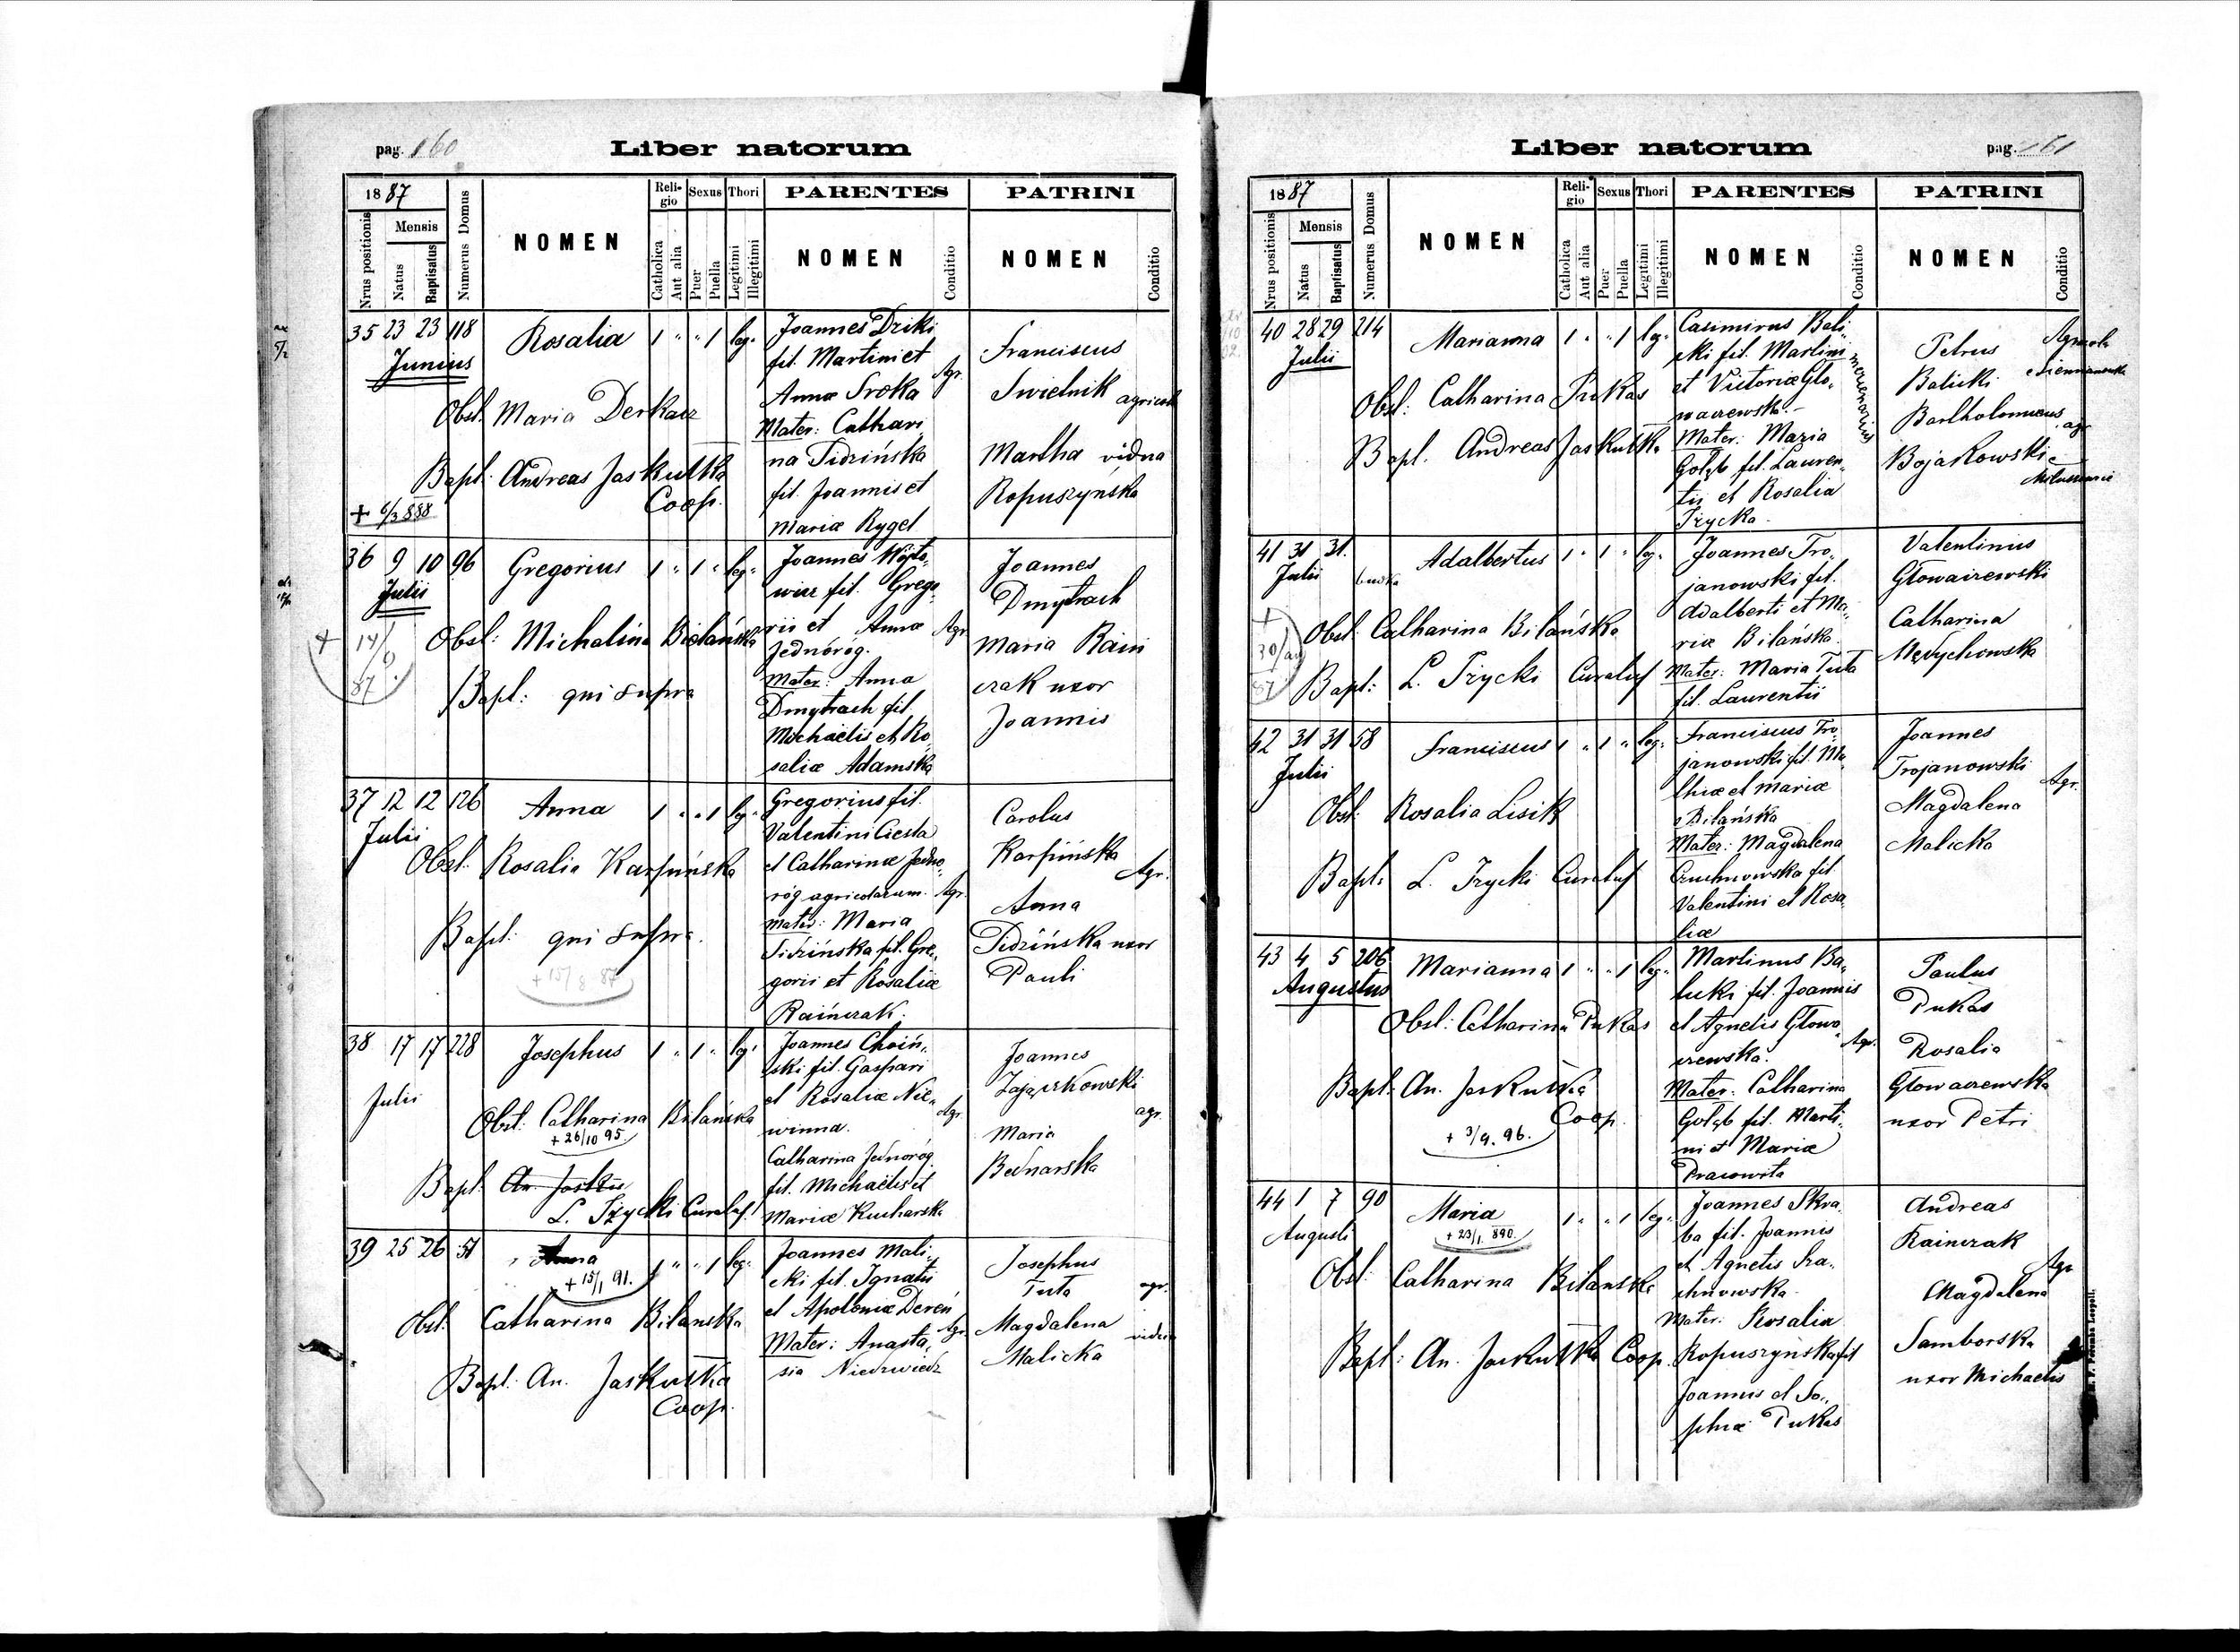 pag. 160
Liber natorum
1887
Nrus positionis
Mensis
Natus
Baptisatus
Numerus Domus
NOMEN
Religio
Catholica
Aut alia
Sexus
Puer
Puella
Thori
Legitimi
Illegitimi
PARENTES
NOMEN
Conditio
PATRINI
NOMEN
Conditio
35 23 23 118
Junius
Rosalia 1 " " 1 leg.
Obst. Maria Derkacz
Bapt: Andreas Jaskulska
Coop.
+ 6/3 888
Joannes Dziki
fil. Martini et
Annæ Sroka
Agr.
Mater: Cathari
na Pidzińska
fil. Joannis et
Mariæ Rygel
Franciscus
Swietnik agricola
Martha vidua
Ropuszyńska
36 9 10 96
Julii
Gregorius 1 " 1 " leg.
+ 14/8 87
Obst: Michalina Bielańska
Bapt: qui supra
Joannes Wójto,
wicz fil. Grego,
rii et Annæ Agr.
Jednoróg.
Mater: Anna
Dmytrach fil.
Michaëlis et Ro,
saliæ Adamska
Joannes
Dmytrach
Maria Rain
czak uxor
Joannis
37 12 12 126
Julii
Anna 1 " " 1 leg.
Obst. Rosalia Karpińska
Bapt: qui supra.
+ 15/8 87
Gregorius fil.
Valentini Ciesla
et Catharinæ Jedno,
róg agricolarum. Agr.
Mater: Maria
Pidzińska fil. Gre,
gorii et Rosaliæ
Raińczak.
Carolus
Karpińska
Agr.
Anna
Pidzińska uxor
Pauli
38 17 17 228
Julii
Josephus 1 " 1 " leg.
Obst: Catharina Bilańska
+ 26/10 95
Bapt: An. Jasku
L. Tzycki Curatus.
Joannes Choiń,
ski fil. Gaspari
et Rosaliæ Nie,
winna. Agr.
Catharina Jednoróg
fil. Michaëlis et
Mariæ Kucharska
Joannes
Zajączkowski
agr.
Maria
Bednarska
39 25 26 51
Anna 1 " " 1 leg.
+ 15/1 91.
Obst. Catharina Bilanska
Bapt: An. Jaskulska
Coop.
Joannes Mali,
cki fil. Ignatii
et Apoloniæ Dereń
Agr.
Mater: Anasta,
sia Niedzwiedz
Josephus
Tuta agr.
Magdalena vidua
Malicka
Liber natorum
pag. 161
1887
Nrus positionis
Mensis
Natus
Baptisatus
Numerus Domus
NOMEN
Religio
Catholica
Aut alia
Sexus
Puer
Puella
Thori
Legitimi
Illegitimi
PARENTES
NOMEN
Conditio
PATRINI
NOMEN
Conditio
40 28 29 214
Julii
Marianna 1 " " 1 leg.
Obst: Catharina Pukas
Bapt. Andreas Jaskulska
Casimirus Bali,
cki fil. Martini
et Victoriæ Glo,
waczewska.
Mater: Maria
Gołąb fil. Lauren,
tii et Rosalia
Tzycka.
Petrus
Balicki
Bartholomæus agr.
Bojakowski
41 31 31.
Julii
Adalbertus 1 " 1 " leg.
Obst. Catharina Bilańska
+ 30/8 87
Bapt: L. Tzycki Curatus
Joannes Tro,
janowski fil.
Adalberti et Ma,
riæ Bilańska.
Mater: Maria Tuta
fil. Laurentii
Valentinus
Głowaczewski
Catharina
Mędychowska
42 31 31 58
Julii
Franciscus 1 " 1 " leg.
Obst: Rosalia Lisik
Bapt: L. Tzycki Curatus
Franciscus Tro,
janowski fil. Ma,
thiæ et Mariæ
Bilańska
Mater: Magdalena
Czuchnowska fil.
Valentini et Rosa
liæ
Joannes
Trojanowski
Agr.
Magdalena
Malicka
43 4 5 206
Augustus
Marianna 1 " " 1 leg.
Obst: Catharina Pukas
Bapt: An. Jaskulska
Coop.
+ 3/9. 96.
Martinus Ba,
lucki fil. Joannis
et Agnetis Głowa,
czewska. Agr.
Mater: Catharina
Gołąb fil. Marti,
ni et Mariæ
Pracowita
Paulus
Pukas
Rosalia
Głowaczewska
uxor Petri
44 1 7 90
Augusti
Maria 1 " " 1 leg.
+ 23/1. 890.
Obst: Catharina Bilanska
Bapt: An. Jaskulska Coop.
Joannes Skra
ba fil. Joannis
et Agnetis Sta,
chnowska
Mater: Rosalia
Ropuszyńska fil
Joannis et So,
phiæ Pukas
Andreas
Rainczak
Agr
Magdalena
Samborska
uxor Michaelis